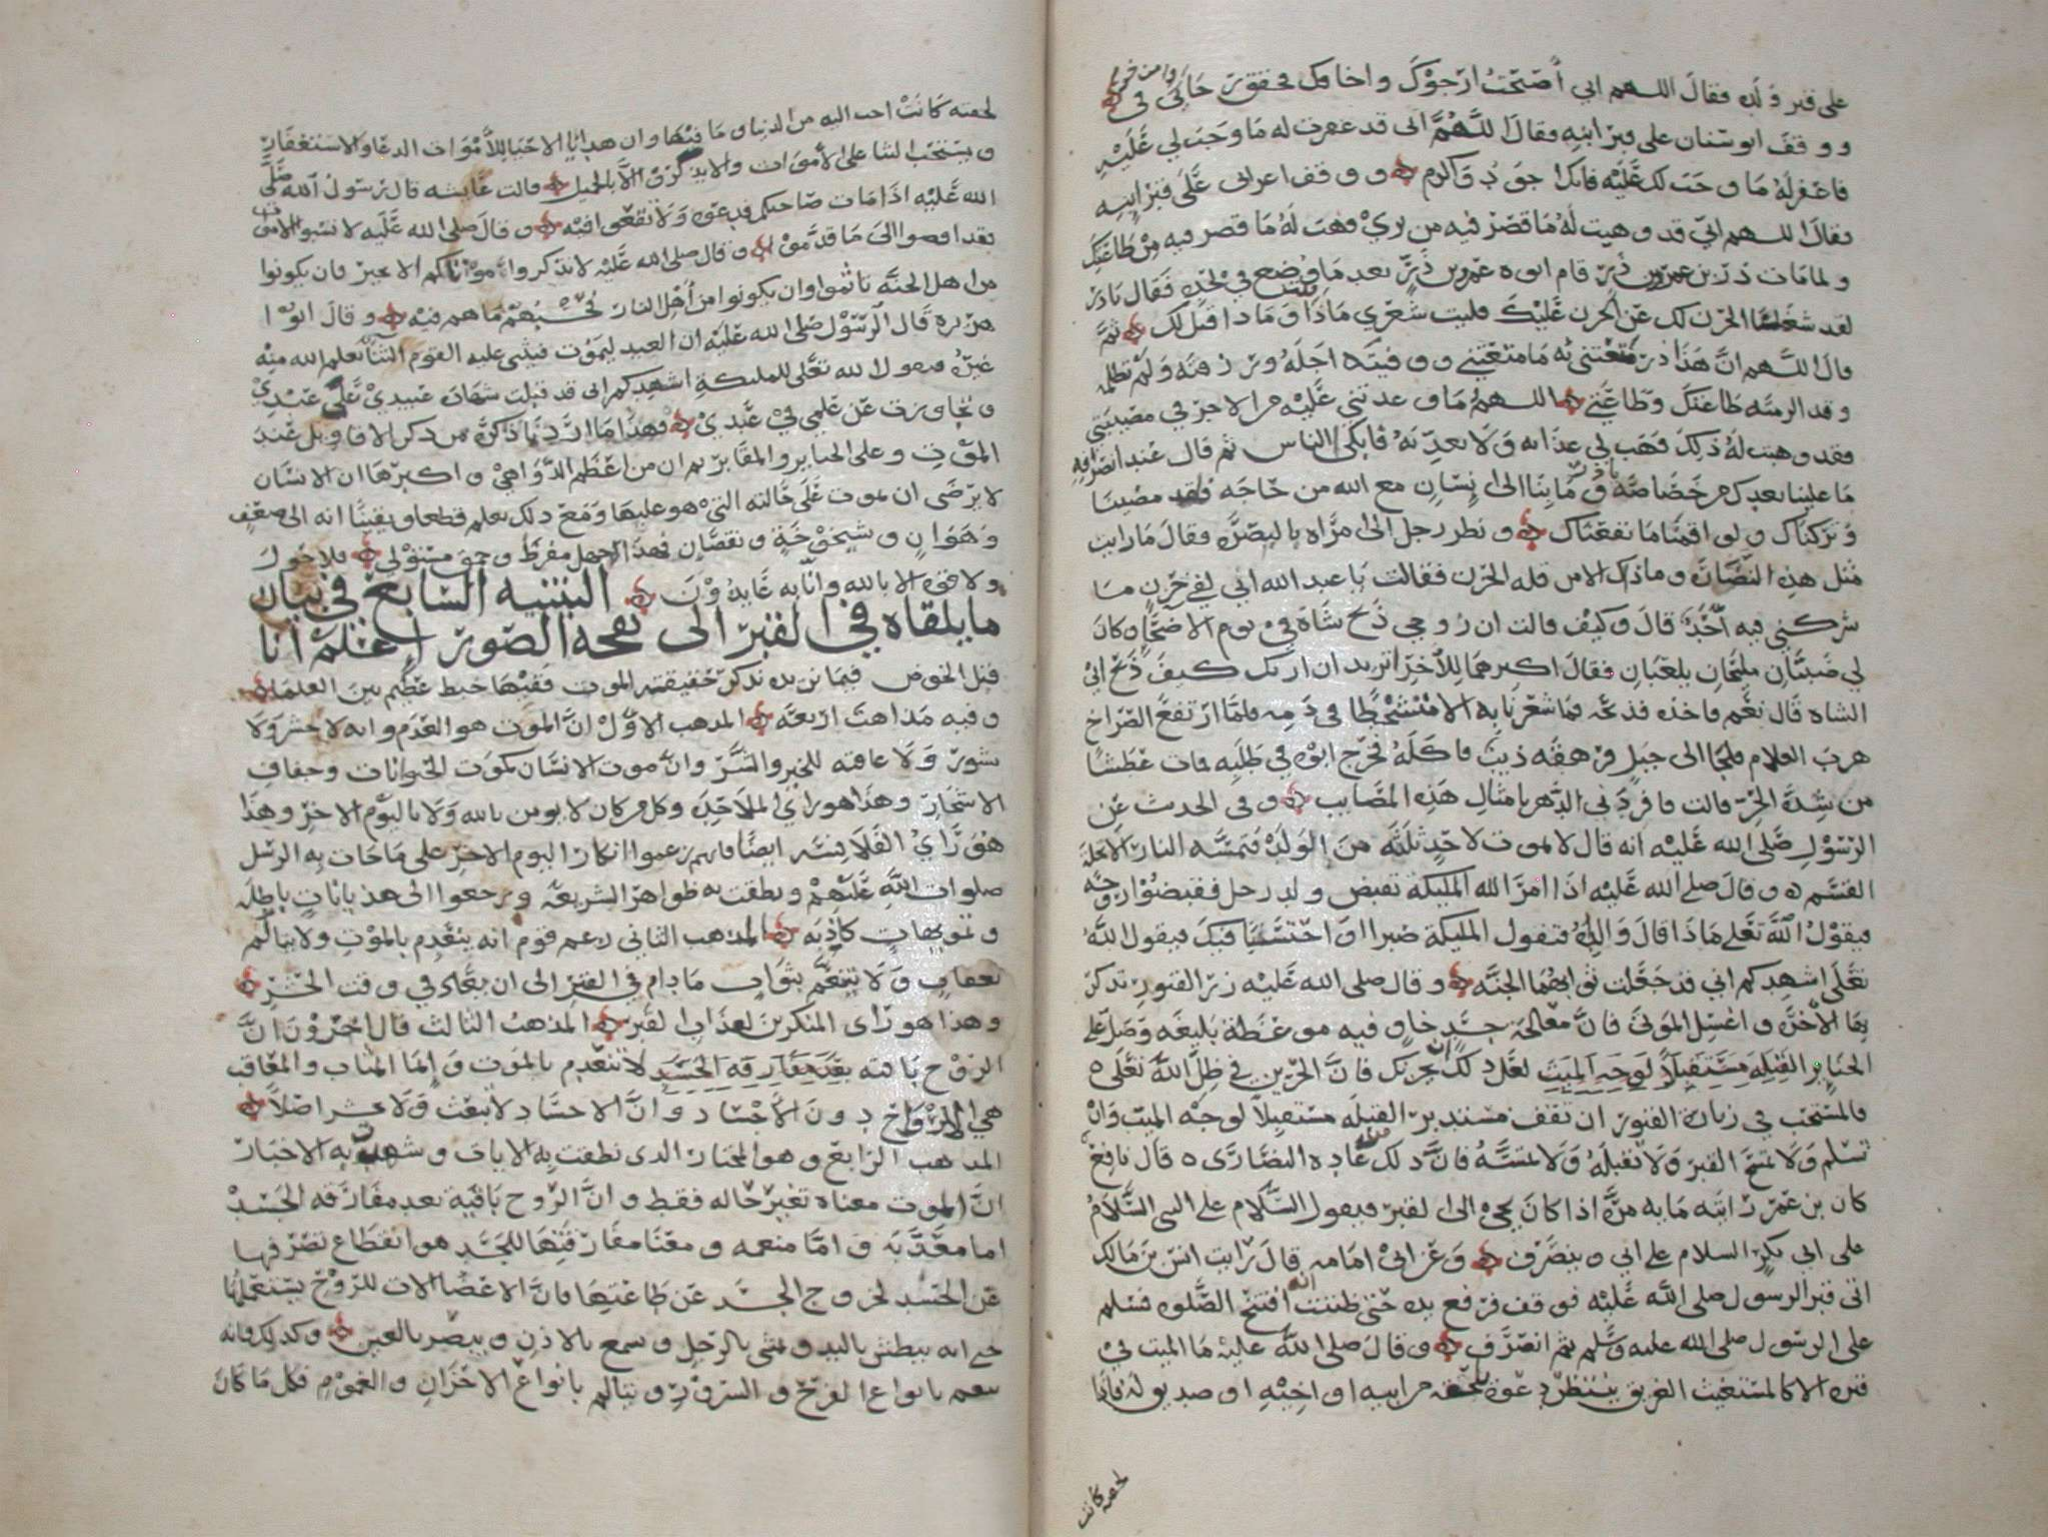 على قبر ولده فقال اللهم اني أصبحت ارجوك واخافك فحقق رجائي وامن خوفي
ووقف ابو سنان على قبر ابنه فقال اللهم اني قد غفرت له ما وجب لي عليه
فاغفر له ما وجب لك عليه فانك اجود واكرم ووقف اعرابي على قبر ابنه
فقال اللهم اني قد وهبت له ما قصر فيه من بري فهب له ما قصر فيه من طاعتك
ولما مات ذر بن عمر بن ذر قام ابوه عمر بن ذر بعد ما وضع في لحده فقال يا ذر
لقد شغلنا الحزن لك عن الحزن عليك فليت شعري ماذا قلت وماذا قيل لك ثم
قال اللهم ان هذا ذر متعتني به ما متعتني ووفيته اجله ورزقه ولم تظلمه
وقد الزمته طاعتك وطاعتي اللهم ما وعدتني عليه من الاجر في مصيبتي
فقد وهبت له ذلك فهب لي عذابه ولا تعذبه فابكى الناس ثم قال عند انصرافه
ما علينا بعدك من خصاصة يا ذر وما بنا الى انسان مع الله من حاجه فلقد مضينا
وتركناك ولو اقمنا ما نفعناك ونظر رجل الى امراه بالبصره فقال ما رايت
مثل هذه النضارة وما ذاك الا من قله الحزن فقالت يا عبد الله اني لفي حزن ما
شركني فيه احد قال وكيف قالت ان زوجي ذبح شاة في يوم الاضحى وكان
لي صبيان مليحان يلعبان فقال اكبرهما للاخر اتريد ان اريك كيف ذبح ابي
الشاه قال نعم فاخذه فذبحه فما شعرنا به الا متشحطا في دمه فلما ارتفع الصراخ
هرب الغلام فلجا الى جبل فرهقه ذيب فاكله فخرج ابوه في طلبه فمات عطشا
من شدة الحر قالت فافردني الدهر بامثال هذه المصايب وفي الحديث عن
الرسول صلى الله عليه انه قال لا يموت لاحد ثلثه من الولد فتمسه النار الا تحلة
القسم وقال صلى الله عليه اذا امر الله المليكة تقبض ولد رجل فقبضوا روحه
فيقول الله تعلى ماذا قال والده فتقول المليكة صبرا واحتسابا فيك فيقول الله
تعلى اشهدكم اني قد جعلت ثوابهما الجنه وقال صلى الله عليه زر القبور تذكر
بها الاخره واغسل الموتى فان معالجة جسد خاو فيه موعظة بليغه وصل على
الجنايز لعل ذلك ان يحزنك فان الحزين في ظل الله تعلى
فالمستحب في زيارة القبور ان تقف مستدبر القبله مستقبلا لوجه الميت وان
تسلم ولا تمسح القبر ولا تقبله ولا تمسه فان ذلك من عادة النصارى قال نافع
كان بن عمر رايته مايه مره اذا كان يجي الى القبر فيقول السلام على النبي السلام
على ابي بكر السلام على ابي وينصرف وعن ابي امامه قال رايت انس بن مالك
اتى قبر الرسول صلى الله عليه فوقف فرفع يده حتى ظننت انه افتتح الصلوه فسلم
على الرسول صلى الله عليه وسلم ثم انصرف وقال صلى الله عليه ما الميت في
قبره الا كالمستغيث الغريق ينتظر دعوة تلحقه من ابيه او اخيه او صديق له فاذا
لحقته كانت
لحقته كانت احب اليه من الدنيا وما فيها وان هدايا الاحيا للأموات الدعا والاستغفار
ويستحب الثنا على الأموات والا يذكرو الا بالجميل قالت عايشه قال رسول الله صلى
الله عليه اذا مات صاحبكم فدعوه ولا تقعوا فيه وقال صلى الله عليه لا تسبوا الاموات
فقد افضوا الى ما قدموا وقال صلى الله عليه لا تذكروا موتاكم الا بخير فان يكونوا
من اهل الجنه تاثموا وان يكونوا من اهل النار فحسبهم ما هم فيه وقال ابو ا
هريره قال الرسول صلى الله عليه ان العبد ليموت فيثني عليه القوم الثنا يعلم الله منه
غيره فيقول الله تعلى للمليكة اشهدكم اني قد قبلت شهادة عبيدي على عبدي
وتجاوزت عن علمي في عبدي فهذا ما اردنا ذكره من ذكر الاقاويل عند
الموت وعلى الجنايز والمقابر ثم ان من اعظم الدواهي واكبرها ان الانسان
لا يرضى ان يموت على حالته التي هو عليها ومع ذلك يعلم قطعا ويقينا انه الى ضعف
وهوان وشيخوخة ونقصان فهذا الجهل مفرط وحمق مستولي فلا حول
ولا قوه الا بالله وانا به عايذون التنبيه السابع في بيان
ما يلقاه في القبر الى نفحه الصور اعلم انا
قبل الخوض فيما نريده نذكر حقيقته الموت ففيها خبط عظيم بين العلما
وفيه مذاهب اربعه المذهب الاول ان الموت هو العدم وانه لا حشر ولا
نشور ولا عاقبه للخير والشر وان موت الانسان كموت الحيوانات وجفاف
الاشجار وهذا هو راي الملاحدة وكل من كان لا يومن بالله ولا باليوم الاخر وهذا
هو راي الفلاسفه ايضا فانهم زعموا انكار اليوم الاخر على ما جات به الرسل
صلوات الله عليهم ونطقت به ظواهر الشريعه ورجعوا الى هذيانات باطله
وتمويهات كاذبه المذهب الثاني زعم قوم انه ينعدم بالموت ولا يتالم
بعقاب ولا يتنعم بثواب ما دام في القبر الى ان يعاد في وقت الحشر
وهذا هو راى المنكرين لعذاب القبر المذهب الثالث قال اخرون ان
الروح باقيه بعد مفارقه الجسد لا تنعدم بالموت وانما المثاب والمعاقب
هي الارواح دون الأجساد وان الاجساد لا تبعث ولا تحشر اصلا
المذهب الرابع وهو المختار الذى نطقت به الايات وشهدت به الاخبار
ان الموت معناه تغير حاله فقط وان الروح باقية بعد مفارقه الجسد
اما معذبة واما منعمه ومعنا مفارقتها للجسد هو انقطاع تصرفها
عن الجسد لخروج الجسد عن طاعتها فان الاعضا الات للروح يستعملها
حتى انه يبطش باليد ويمشي بالرجل ويسمع بالاذن ويبصر بالعين وكذلك فانه
يتنعم بانواع الفرح والسرور ويتالم بانواع الاحزان والغموم فكل ما كان